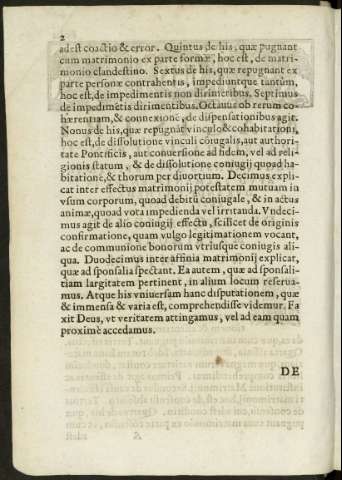 2
adest coactio & error. Quintus de his, quæ pugnant
cum matrimonio ex parte formæ, hoc est, de matri-
monio clandestino. Sextus de his, quæ repugnant ex
parte personæ contrahentis, impediuntque tantùm,
hoc est, de impedimentis non dirimétibus. Septimus
de impedimétis dirimentibus. Octauus ob rerum co-
hærentiam, & connexioné, de dispensationibus agit.
Nonus de his, quæ repugnāt vinculo & cohabitationi,
hoc est, de dissolutione vinculi cōiugalis, aut authori-
tate Pontificis, aut conuersione ad fidem, vel ad reli-
gionis statum, & de dissolutione coniugij quoad ha-
bitationé, & thorum per diuortium. Decimus expli-
cat inter effectus matrimonij potestatem mutuam in
vsum corporum, quoad debitū coniugale, & in actus
animæ, quoad vota impedienda vel irritanda. Vndeci-
mus agit de alio coniugij effectu, scilicet de originis
confirmatione, quam vulgo legitimationem vocant,
ac de communione bonorum vtriusque coniugis ali-
qua. Duodecimus inter affinia matrimonij explicat,
quæ ad sponsalia spectant. Ea autem, quæ ad sponsali-
tiam largitatem pertinent, in alium locum reserua-
mus. Atque his vniuersam hanc disputationem, quæ
& immensa & varia est, comprehendisse videmur. Fa
xit Deus, vt veritatem attingamus, vel ad eam quam
proximè accedamus.
DE